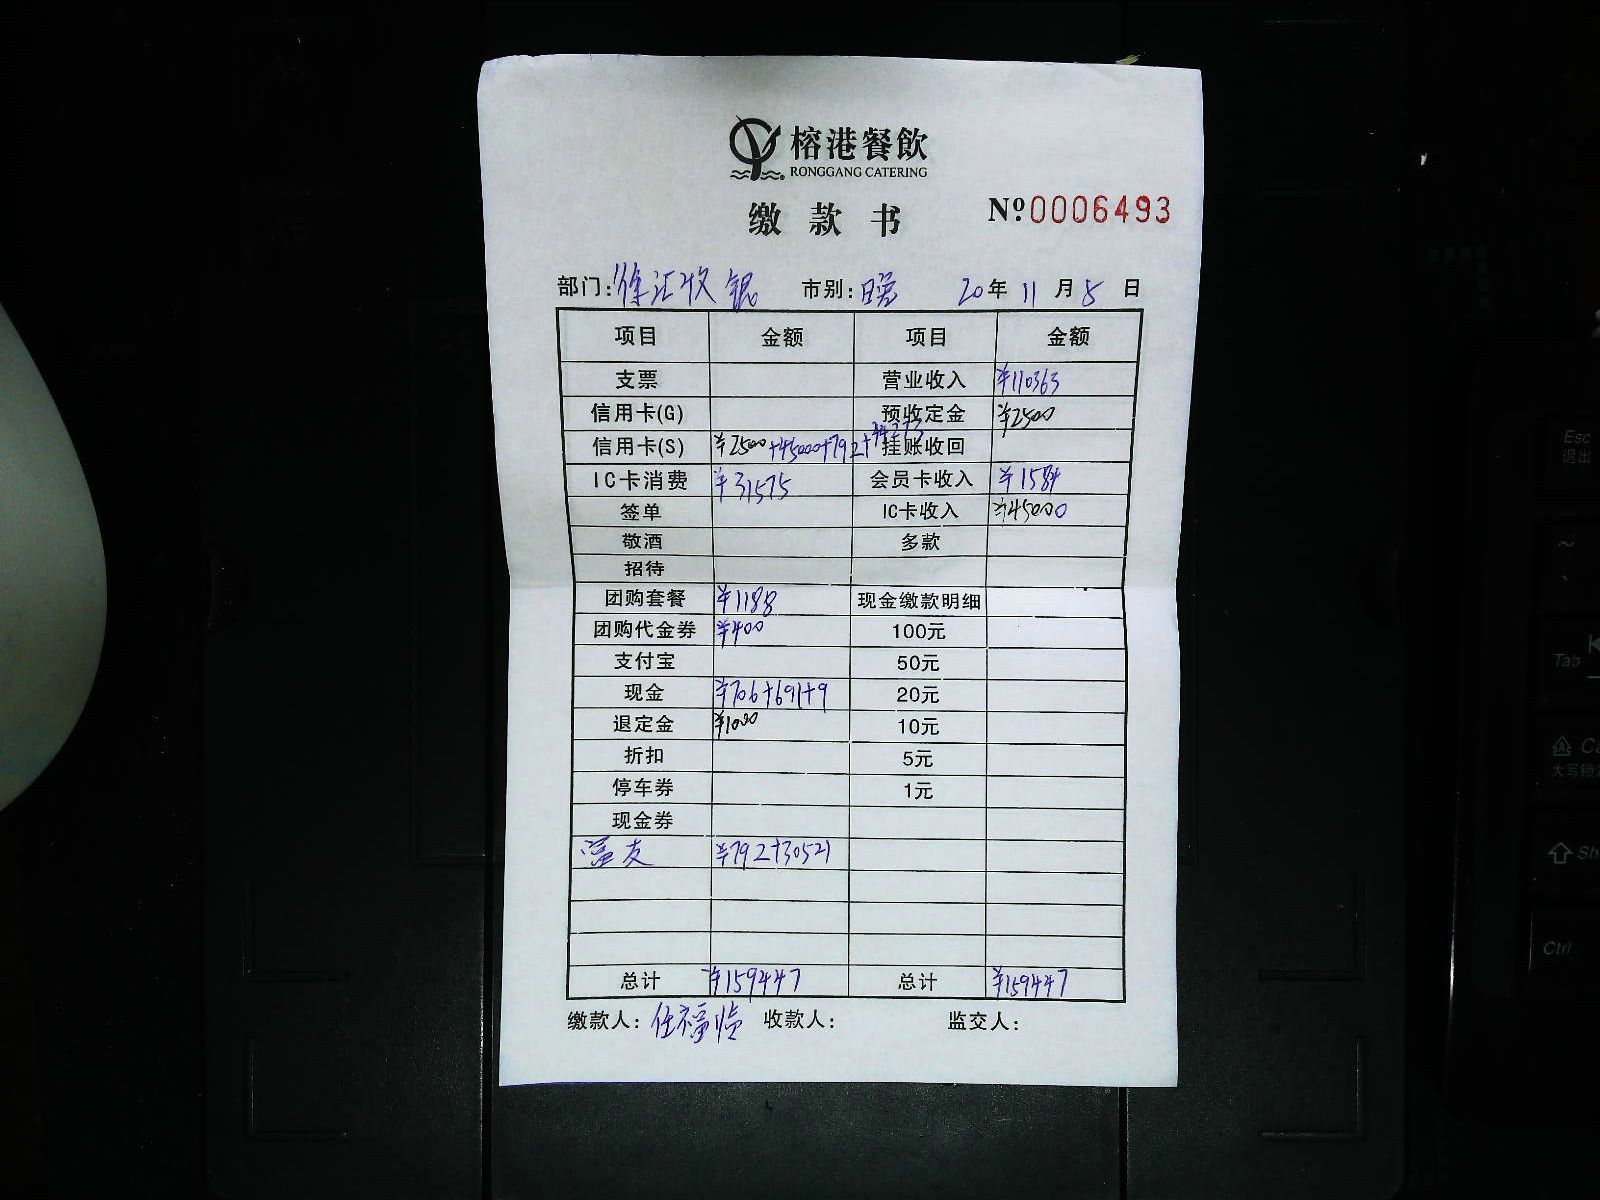 榕港餐飲
RONGGANG CATERING
缴款书 Nº0006493
部门:徐汇收银 市别:晚 20年11月5日
项目 金额 项目 金额
支票 营业收入 ¥110363
信用卡(G) 预收定金 ¥2500
信用卡(S) ¥2500+45000+792+44273 挂账收回
IC卡消费 ¥31575 会员卡收入 ¥1584
签单 IC卡收入 ¥45000
敬酒 多款
招待
团购套餐 ¥1188 现金缴款明细
团购代金券 ¥400 100元
支付宝 50元
现金 ¥706+691+9 20元
退定金 ¥1000 10元
折扣 5元
停车券 1元
现金券
¥792+30521
总计 ¥159447 总计 ¥159447
缴款人:任福临 收款人: 监交人:
Esc
退出
~
Tab
Ctrl